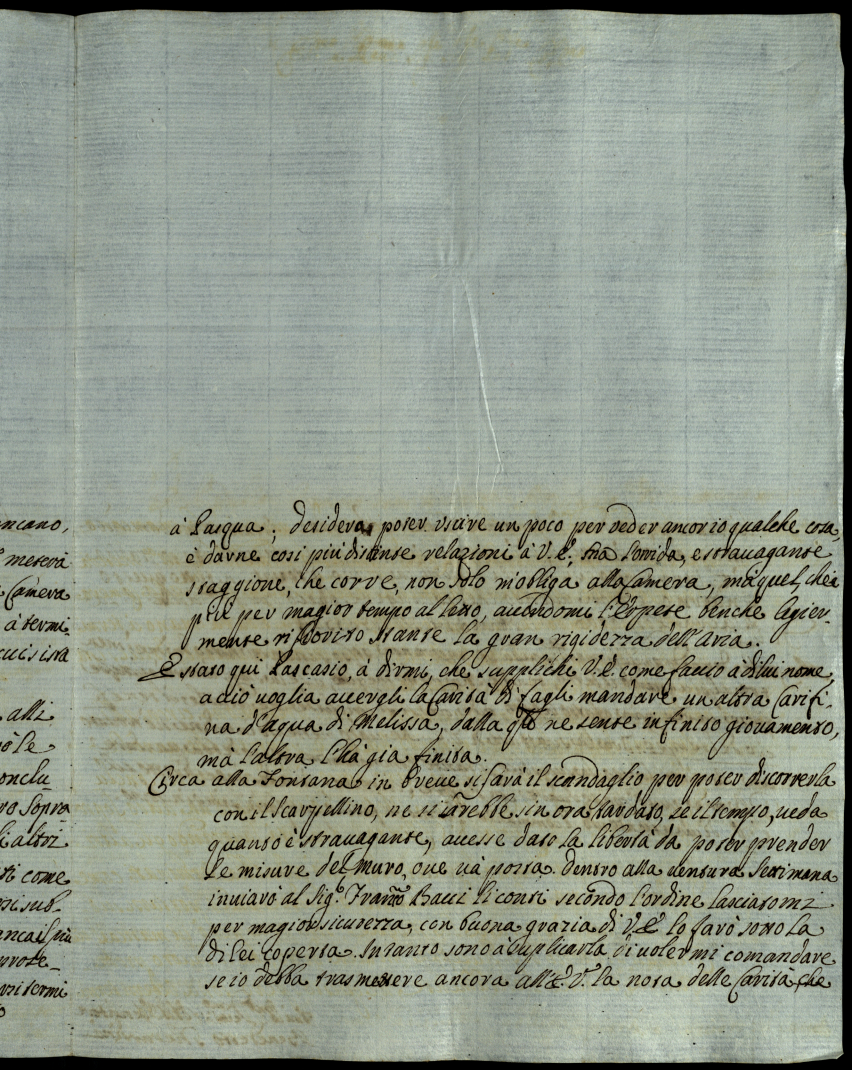 ancano,
meterà
Camera
à termi
cuisita
alli
ò le
onclu-
ro sopra
li altri
ti come
si sub.
anca il più
urote-
vri termi
à Pasqua; desidera poter uscire un poco per veder ancor io qualche cosa,
è darne così più distinte relazioni à V.E.; mà l'orrida, e stravagante
staggione, che corre, non solo m'obliga alla Camera, mà quel, che è
più per magior tempo al letto, avendomi l'Epopese benche legier-
mente risboviro stante la gran rigidezza dell'aria.
È stato qui Pascasio, à dirmi, che supplichi V.E. come faccio a di lui nome
acciò voglia avergli la Carità di fagli mandare un altra Carifi-
na d'aqua di Melissa, dalla qle ne sente infinito giovamento,
mà l'altra l'hà gia finita.
Circa alla Fontana in breve si farà il scandaglio per poter discorrerla
con il Scarpellino, ne si sarebbe sin ora tardato, se il tempo, veda
quanto è stravagante, avesse dato la libertà da poter prender
le misure del muro, ove và posta. Dentro alla ventura Settimana
inviarò al Sigr. Franco Bacci li conti secondo l'ordine lasciatomi
per magior sicurezza, con buona grazia di V.E. lo farò sotto la
di lei coperta. Intanto sono à suplicarla di volermi comandare
se io debba trasmettere ancora all'E.V. la nota delle Carità che